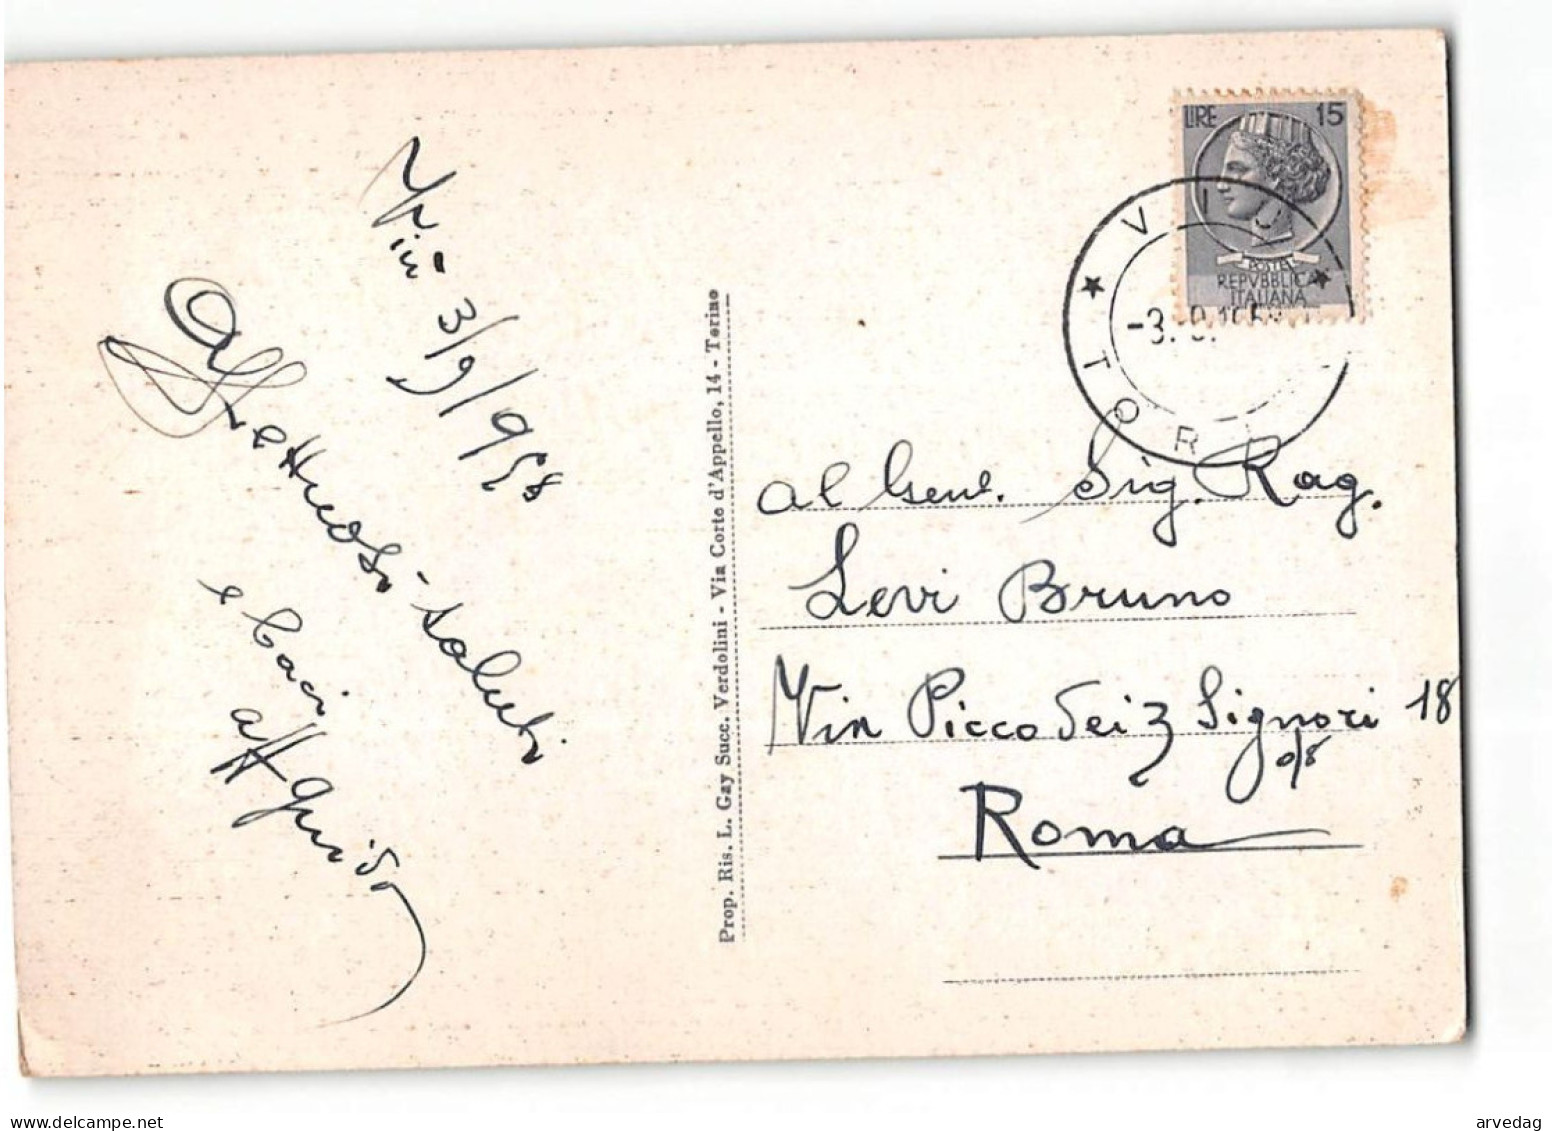 Viù 3/9/958
Affettuosi saluti
e baci
aff Guido
Prop. Ris. L. Gay Succ. Verdolini - Via Corte d'Appello, 14 - Torino
LIRE 15
POSTE
REPVBBLICA
ITALIANA
VIU
* TORI *
-3. 9. 1958
Al Genl. Sig. Rag.
Levi Bruno
Via Piccodeiz Signori 18
Roma
delcampe.net
arvedag